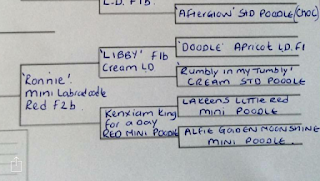 L.D. F1b
'AFTERGLOW' STD POODLE (CHOC)
'LIBBY' F1b
Cream LD
'DOODLE' Apricot L.D. F1
'Rumbly in my Tumbly'
CREAM STD POODLE
'Ronnie'
Mini Labradoodle
Red F2b
Kenxiam King
for a Day
RED MINI POODLE
LAKEENS LITTLE RED
MINI POODLE
ALFIE GOLDEN MOONSHINE
MINI POODLE